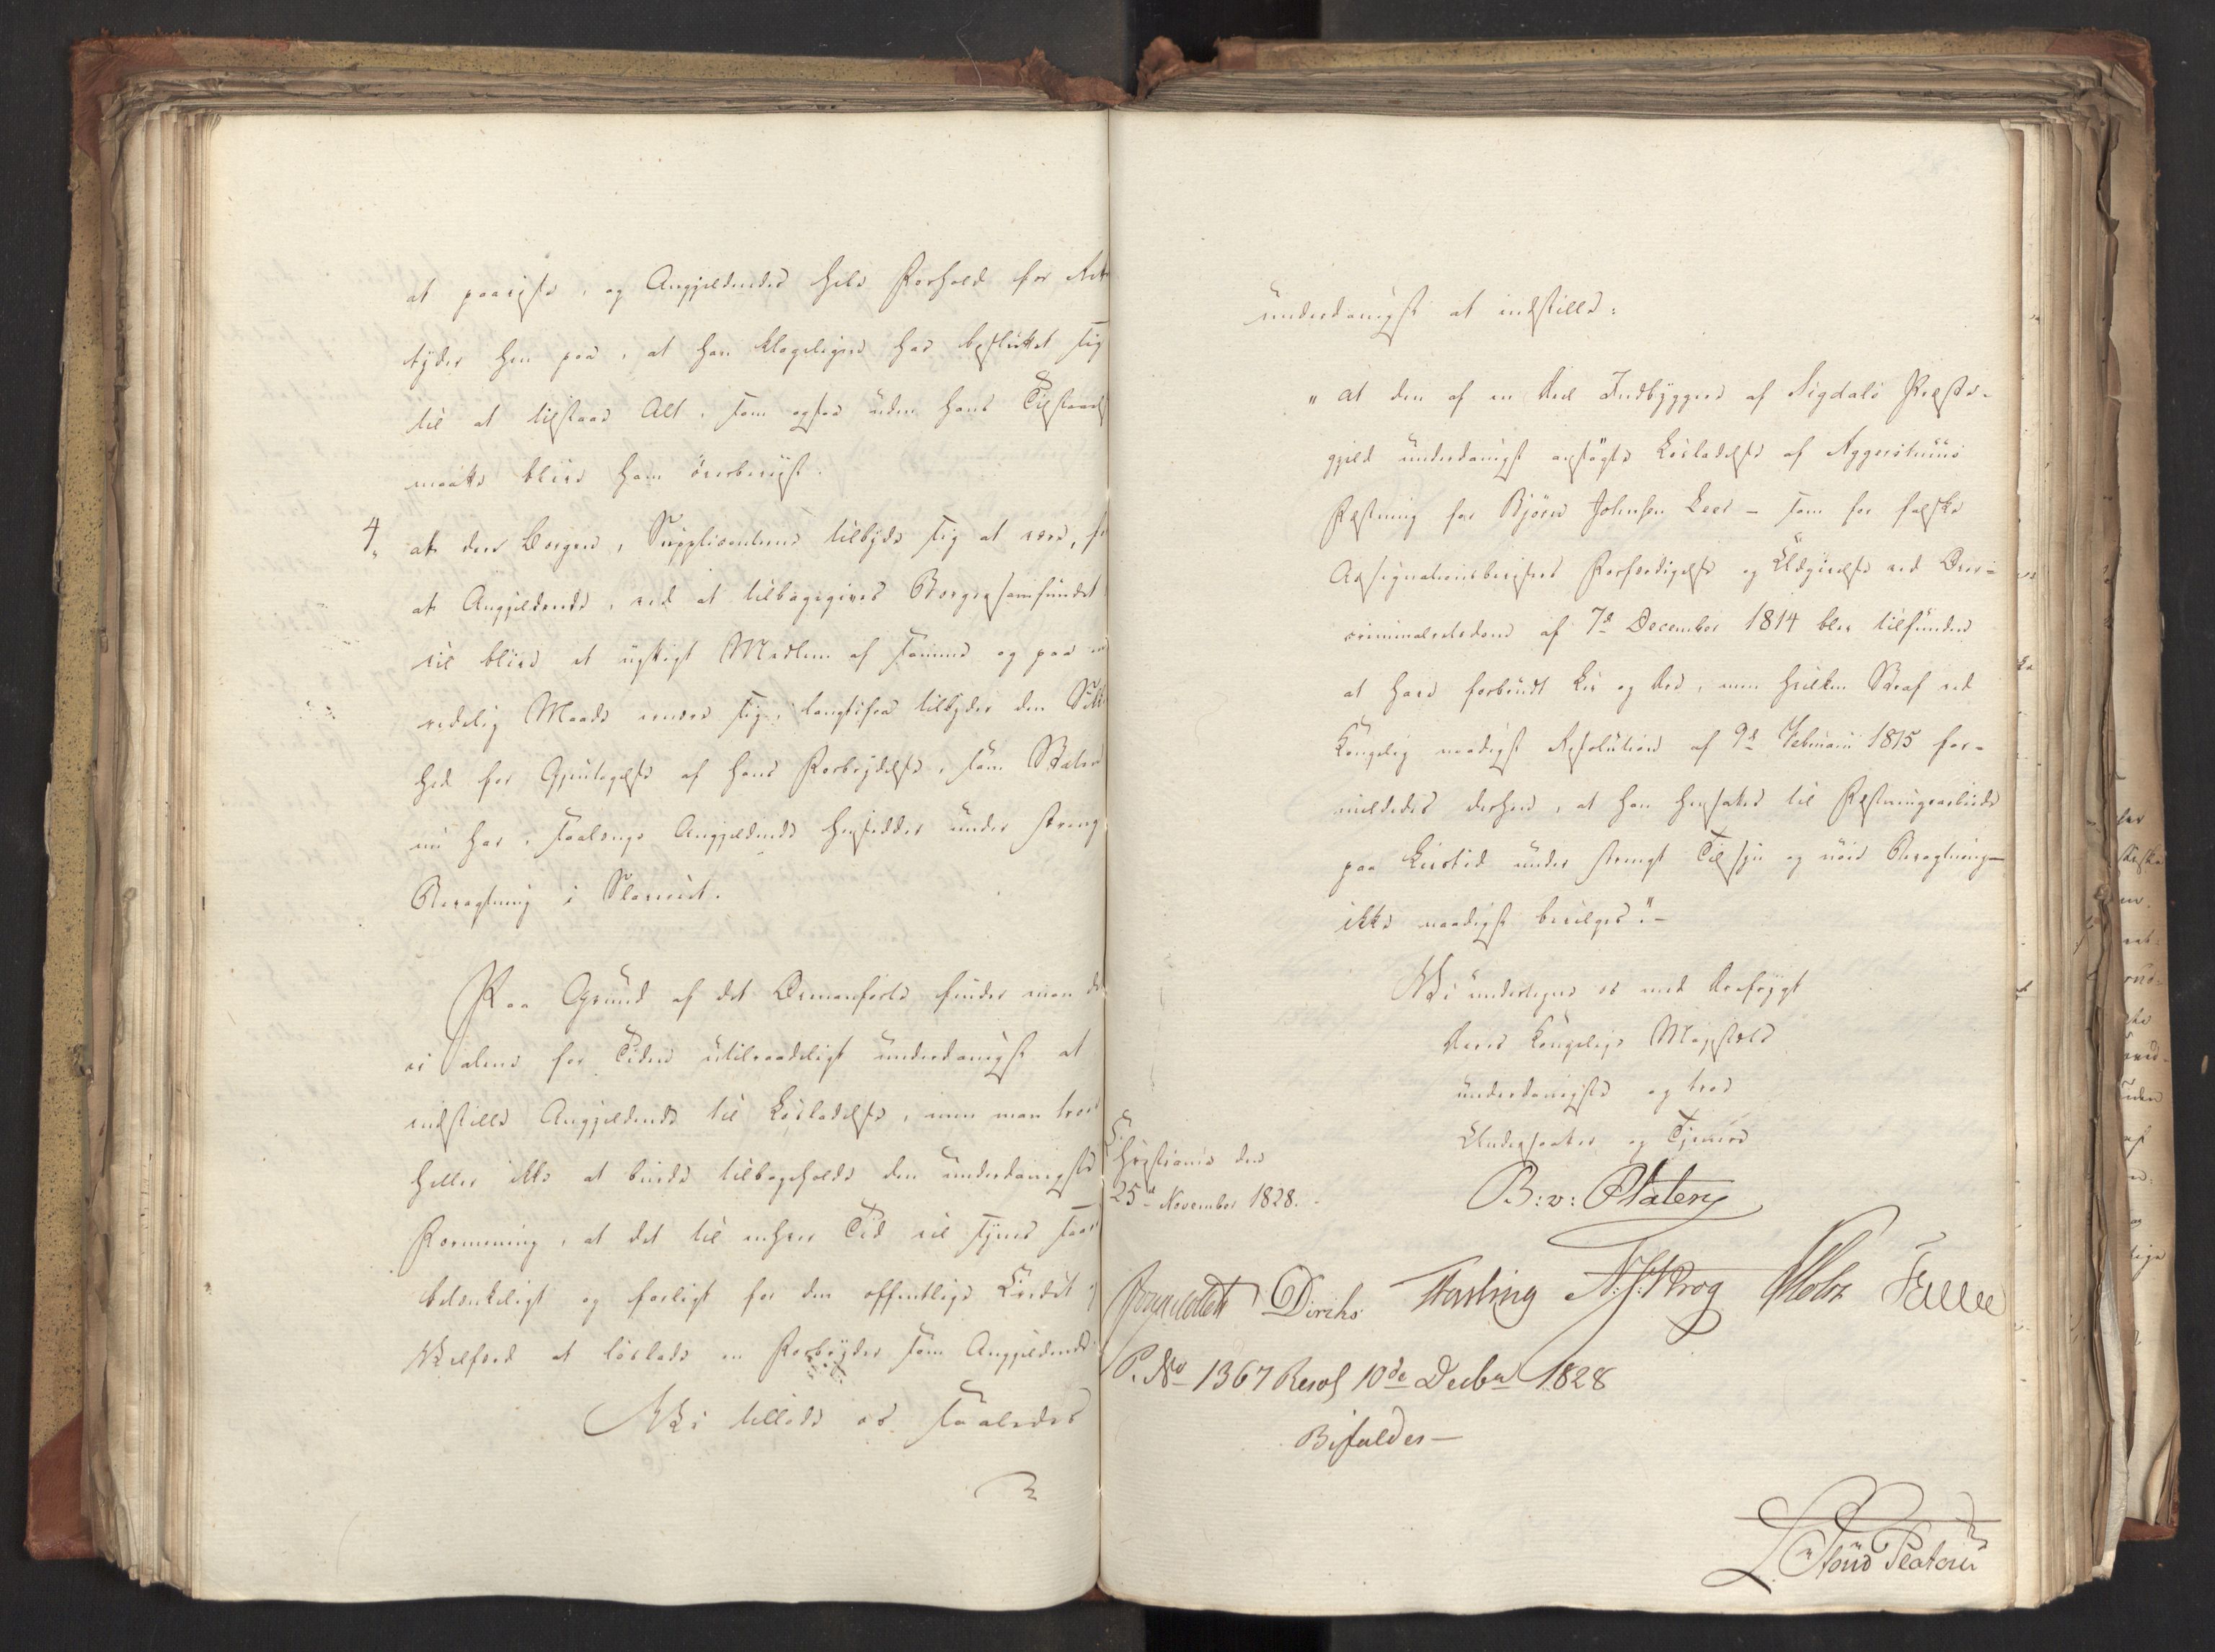 at paavise, og Angjeldendes hele Forhold for Ret
tyder hen paa, at han klogeligen har besluttet sig
til at tilstaae Alt, som ogsaa uden hans Tilstaaelse
maatte blive ham overbeviist.
4, at den Borgen, Supplicanterne tilbyde sig at være, for
at Angjeldende, ved at tilbagegives Borgersamfundet
vil blive et nyttigt Medlem af samme og paa en
redelig Maade ernære sig, langtifra tilbyder den Sikker
hed for Gjentagelse af hans Forbrydelse, som Staten
nu har, saalænge Angjeldende hensidder under streng
Bevogtning i Slaveriet.
Paa Grund af det Ovenanførte finder man det
vi alene for Tiden utilraadeligt underdanigst at
indstille Angjeldende til Løsladelse, men man troer
heller ikke at burde tilbageholde den underdanigste
Formening, at det til enhver Tid vil synes saare
betænkeligt og farligt for den offentlige Credit og
Velfærd at løslade en Forbryder som Angjeldende.
Vi tillade os saaledes
underdanigst at indstille:
"at den af en Deel Indbyggere af Sigdals Præste-
gjeld underdanigst ansøgte Løsladelse af Aggershuus
Fæstning for Bjørn Johnsen Leer – som for falske
Assignationsbevisers Forfærdigelse og Udgivelse ved Over-
criminalretsdom af 7de December 1814 blev tilfunden
at have forbrudt Liv og Ære, men hvilken Straf ved
Kongelig naadigst Resolution af 9de Februarii 1815 for-
mildedes derhen, at han hensattes til Fæstningsarbeide
paa Livstid under strengt Tilsyn og nøie Bevogtning –
ikke naadigst bevilges." –
Vi undertegne os med Ærefrygt
Deres Kongelige Majestæts
underdanigste og troe
Undersaatter og Tjenere
Christiania den
25de November 1828.
B: v: Platen
Diriks Fasting N. J. Krog Holst
P. No 1367 Resol 10de Decbr 1828
Bifaldes –